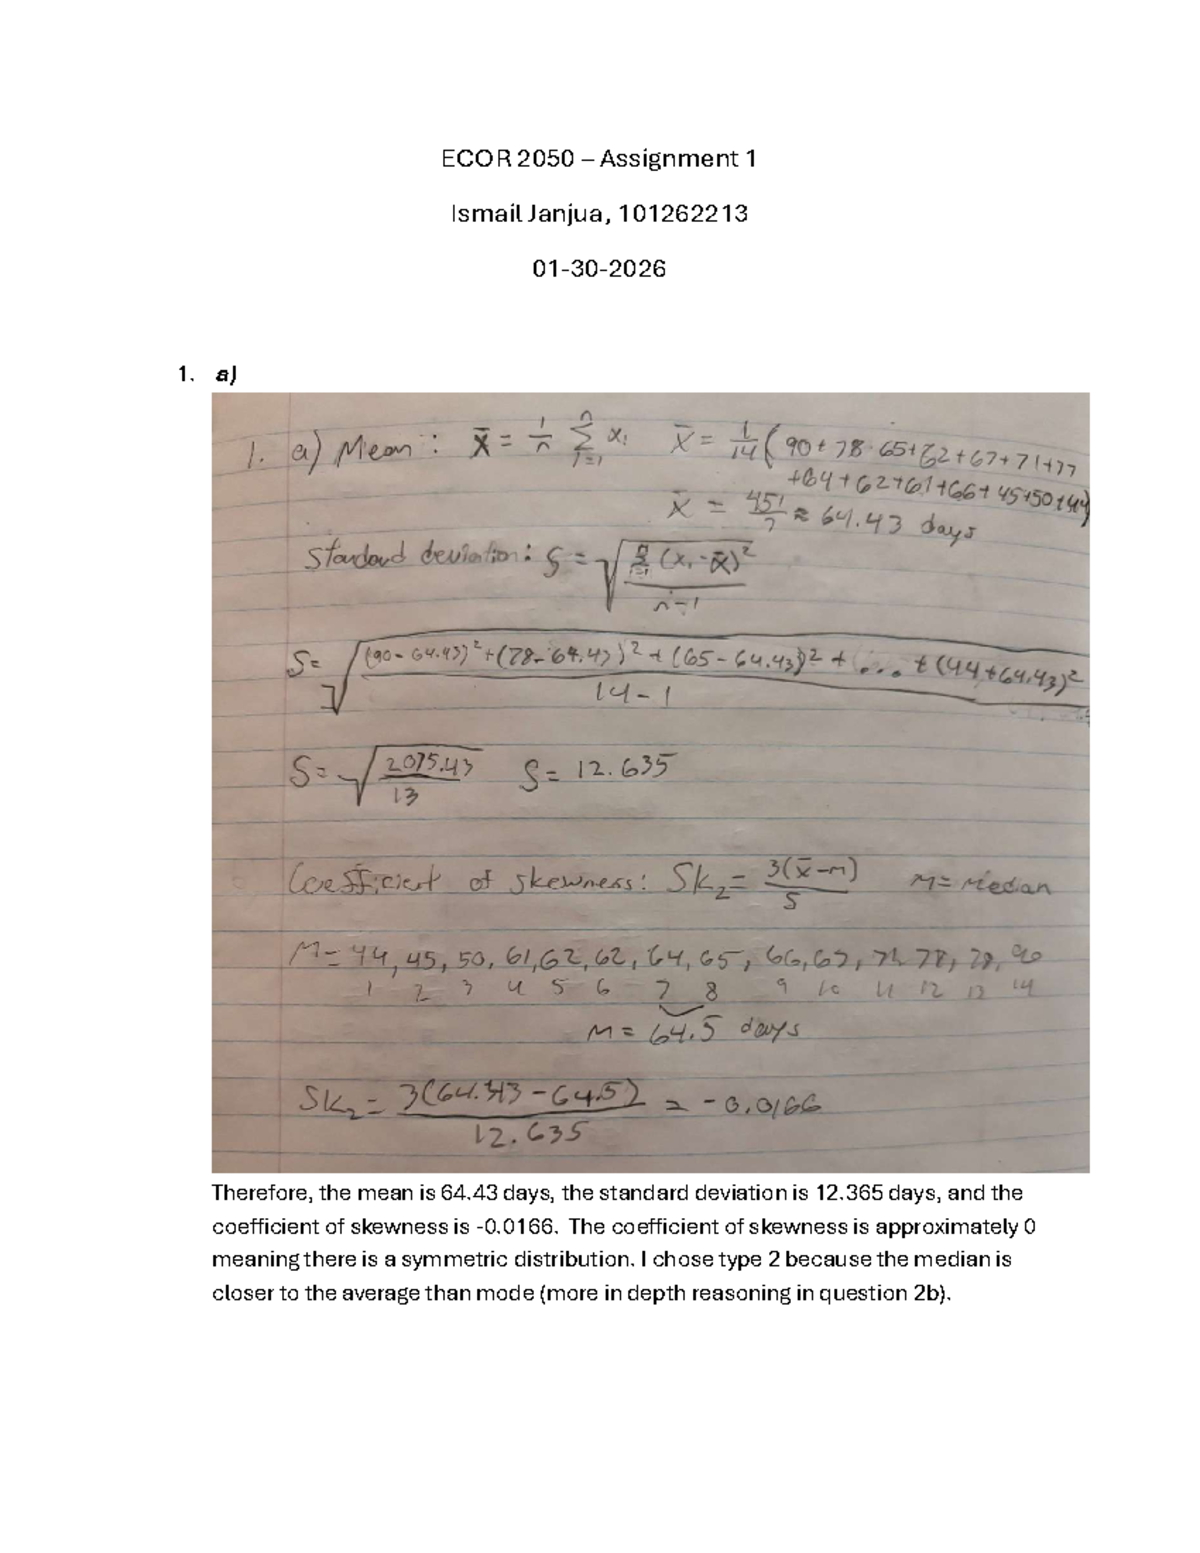 ECOR 2050 – Assignment 1
Ismail Janjua, 101262213
01-30-2026
1. a)
1. a) Mean: x̄ = 1/n Σ i=1 n xi x̄ = 1/14 (90+78+65+62+67+71+77
+64+62+61+66+45+50+44)
x̄ = 451/7 ≈ 64.43 days
Standard deviation: S = √(Σ i=1 n (xi - x̄)² / n-1)
S = √((90-64.43)²+(78-64.43)²+(65-64.43)²+...+(44+64.43)² / 14-1)
S = √(2075.43 / 13) S = 12.635
Coefficient of skewness: Sk₂ = 3(x̄-m) / S M = Median
M = 44, 45, 50, 61, 62, 62, 64, 65, 66, 67, 71, 77, 78, 90
1 2 3 4 5 6 7 8 9 10 11 12 13 14
M = 64.5 days
SK₂ = 3(64.43-64.5) / 12.635 = -0.0166
Therefore, the mean is 64.43 days, the standard deviation is 12.365 days, and the
coefficient of skewness is -0.0166. The coefficient of skewness is approximately 0
meaning there is a symmetric distribution. I chose type 2 because the median is
closer to the average than mode (more in depth reasoning in question 2b).